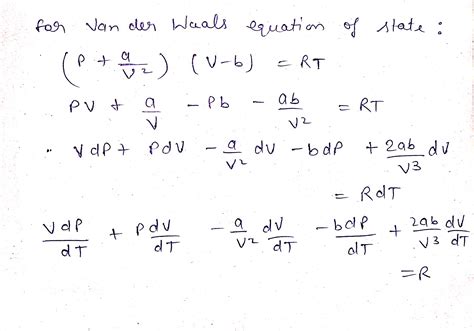 for Van der Waals equation of state :
(P + a/V²) (V-b) = RT
PV + a/V - Pb - ab/V² = RT
. VdP + PdV - a/V² dV - bdP + 2ab/V3 dV
= RdT
VdP/dT + PdV/dT - a/V² dV/dT - bdP/dT + 2ab/V3 dV/dT
= R